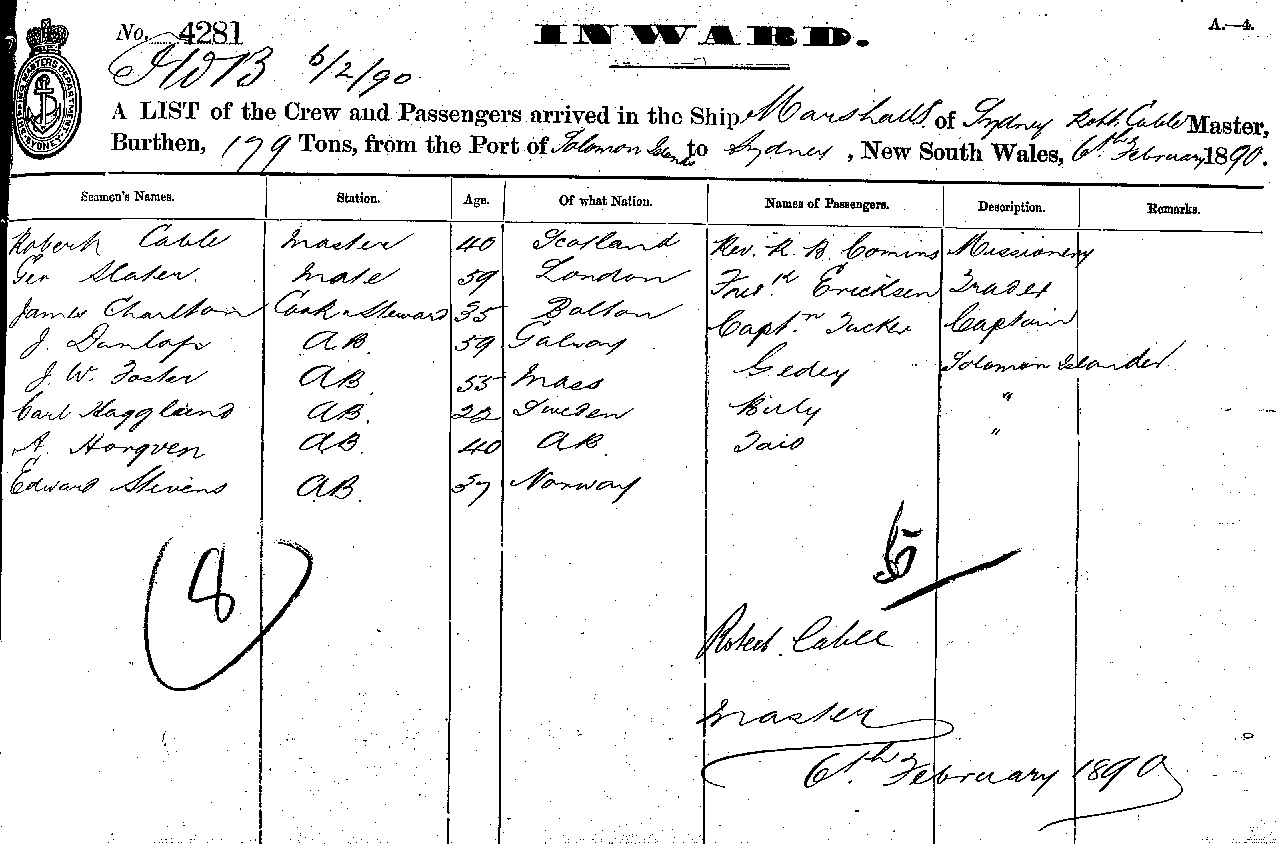 No. 4281
INWARD.
A.—4.
HWB 6/2/90
A LIST of the Crew and Passengers arrived in the Ship Marshall S. of Sydney Robt. Cable Master,
Burthen, 179 Tons, from the Port of Solomon Islands to Sydney, New South Wales, 6th February 1890.
Seamen's Names. Station. Age. Of what Nation. Names of Passengers. Description. Remarks.
Robert Cable Master 40 Scotland Rev. R. B. Comins Missionery
Geo Slater. Mate 59 London Fredk Ericksen Trader
James Charlton Cook & Steward 35 Bolton Captn Tucker Captain
J. Dunlop AB. 59 Galway Gedey Solomon Islander
J. W. Foster AB. 55 Mass Billy "
Carl Hagglund AB. 22 Sweden Taio "
A. Horgven AB. 40 AB.
Edward Stevens AB. 37 Norway
8
6
Robert Cable
Master
6th February 1890